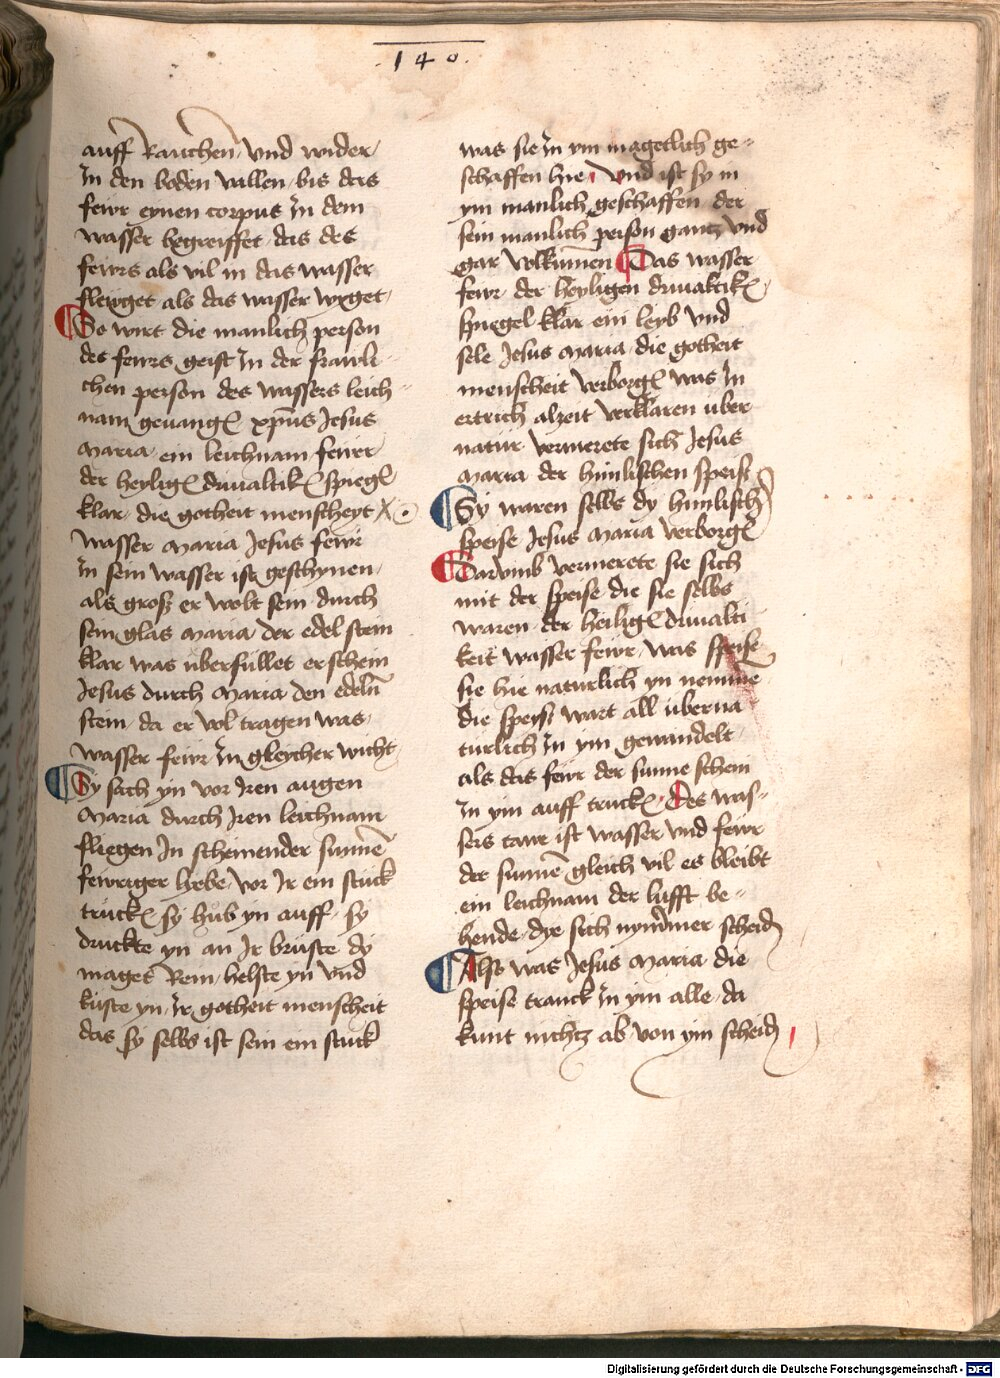 ·140·
auff Rauchen vnd wider
In den boden vallen bis das
fewr eynen corpus In dem
wasser begreiffet das des
fewrs als vil in das wasser
flewget als das wasser wiget
So wirt die manlich person
des fewrs geist In der frawli
chen person des wassers leich
nam gevange xpus Jesus
maria ein leichnam fewer
der heylig driualtik spieg
klar die gotheit menscheyt X
wasser maria Jesus fewr
In sein wasser ist geschynen
als groß er wolt sein durch
sein glas maria der edel stein
klar was uberfullet erschein
Jesus durch maria den edeln
stein da er vol tragen was
wasser fewr In gleycher wicht
Sy sach yn vor Iren augen
maria durch Iren leichnam
fliegen In scheinender sunne
fewriger liebe vor Ir ein stuck
trucke sy hub yn auff sy
druckte yn an Ir bruste dy
maget Rein helste yn vnd
kuste yn Ir gotheit menscheit
das sy selbs ist sein ein stuck
was sie In ym magetlich ge-
schaffen hie vnd ist sy in
ym manlich geschaffen der
sein manlich person gantz vnd
gar volkumen Das wasser
fewr der heyligen driualtik
spiegel klar ein leyb vnd
sele Jesus maria die gotheit
menscheit verborge was In
ertrich alzeit verklaren uber
natur vermerete sich Jesus
maria der himlischen speise
Sy waren selbs dy himlisch
speise Jesus maria verborge
Darvmb vermerete sie sich
mit der speise die sie selbs
waren der heilige driualti
keit wasser fewr was speise
sie hie naturlich yn nemme
die speyse wart all uberna
turlich In ym gewandelt
als das fewr der sunne schein
In ym auff trucke Des was-
sers tawe ist wasser vnd fewr
der sunne gleich vil es bleibt
ein leichnam der lufft be-
hende dye sich nymmer scheid
Also was Jesus maria die
speise tranck In ym alle da
kunt nichtz ab von ym scheid
Digitalisierung gefördert durch die Deutsche Forschungsgemeinschaft - DFG